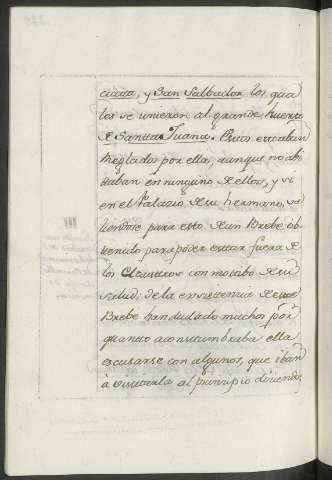 cuatta, y San Salbador los qua
les se unieron al grande, huerto
de Santta Juana. Estos estaban
Arreglados por ella, aunque no abi
ttaban en ninguno de ellos, y vi
en el Palazio de su hermano, va
liendose para esto de un Brebe ob
tenido para poder estar fuera de
los Claustros con motibo de su
salud; de la existencia de este
Brebe han dudado muchos porq
quando acostumbraba ella
escusarse con algunos, que iban
à visitarla al prinzipio diziendo,